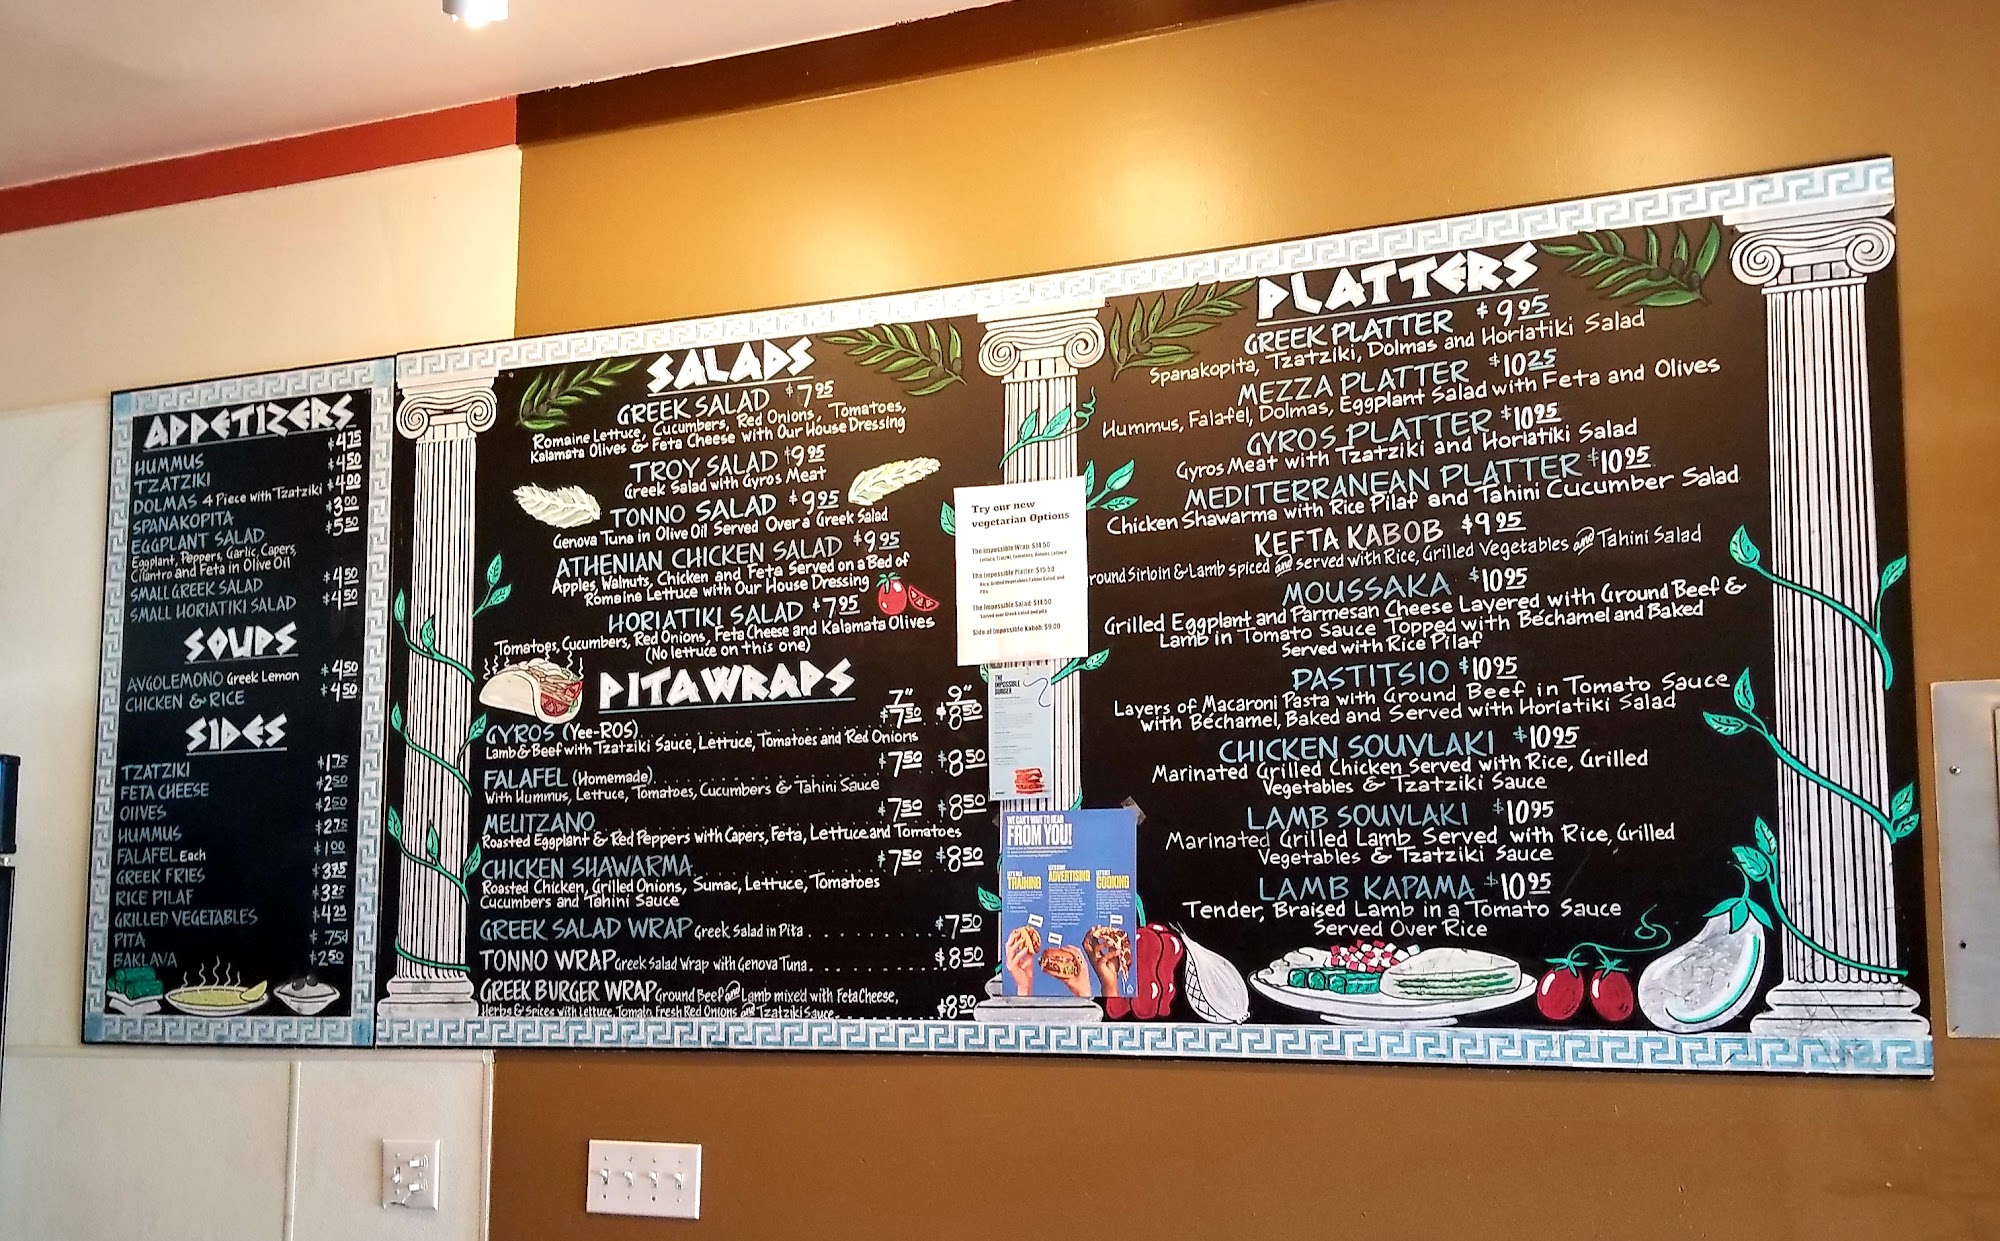 APPETIZERS
HUMMUS $4.75
TZATZIKI $4.50
DOLMAS 4 Piece with Tzatziki $4.00
SPANAKOPITA $3.00
EGGPLANT SALAD $5.50
Eggplant, Peppers, Garlic, Capers,
Cilantro and Feta in Olive Oil
SMALL GREEK SALAD $4.50
SMALL HORIATIKI SALAD $4.50
SOUPS
AVGOLEMONO Greek Lemon $4.50
CHICKEN & RICE $4.50
SIDES
TZATZIKI $1.75
FETA CHEESE $2.50
OLIVES $2.50
HUMMUS $2.75
FALAFEL Each $1.00
GREEK FRIES $3.75
RICE PILAF $3.25
GRILLED VEGETABLES $4.25
PITA $.75¢
BAKLAVA $2.50
SALADS
GREEK SALAD $7.95
Romaine Lettuce, Cucumbers, Red Onions, Tomatoes,
Kalamata Olives & Feta Cheese with Our House Dressing
TROY SALAD $9.95
Greek Salad with Gyros Meat
TONNO SALAD $9.95
Genova Tuna in Olive Oil Served Over a Greek Salad
ATHENIAN CHICKEN SALAD $9.95
Apples, Walnuts, Chicken and Feta Served on a Bed of
Romaine Lettuce with Our House Dressing
HORIATIKI SALAD $7.95
Tomatoes, Cucumbers, Red Onions, Feta Cheese and Kalamata Olives
(No lettuce on this one)
PITAWRAPS
7" 9"
GYROS (Yee-ROS) $7.50 $8.50
Lamb & Beef with Tzatziki Sauce, Lettuce, Tomatoes and Red Onions
FALAFEL (Homemade) $7.50 $8.50
With Hummus, Lettuce, Tomatoes, Cucumbers & Tahini Sauce
MELITZANO $7.50 $8.50
Roasted Eggplant & Red Peppers with Capers, Feta, Lettuce and Tomatoes
CHICKEN SHAWARMA $7.50 $8.50
Roasted Chicken, Grilled Onions, Sumac, Lettuce, Tomatoes
Cucumbers and Tahini Sauce
GREEK SALAD WRAP Greek Salad in Pita $7.50
TONNO WRAP Greek Salad Wrap with Genova Tuna $8.50
GREEK BURGER WRAP Ground Beef and Lamb mixed with Feta Cheese,
Herbs & Spices with Lettuce, Tomato, Fresh Red Onions and Tzatziki Sauce $8.50
Try our new
vegetarian Options
The Impossible Wrap: $14.50
The Impossible Platter: $15.50
The Impossible Salad: $14.50
Served over Greek salad and pita
Side of Impossible Kabob: $9.00
THE
IMPOSSIBLE
BURGER
WE CAN'T WAIT TO HEAR
FROM YOU!
TRAINING
ADVERTISING
COOKING
PLATTERS
GREEK PLATTER $9.95
Spanakopita, Tzatziki, Dolmas and Horiatiki Salad
MEZZA PLATTER $10.25
Hummus, Falafel, Dolmas, Eggplant Salad with Feta and Olives
GYROS PLATTER $10.95
Gyros Meat with Tzatziki and Horiatiki Salad
MEDITERRANEAN PLATTER $10.95
Chicken Shawarma with Rice Pilaf and Tahini Cucumber Salad
KEFTA KABOB $9.95
round Sirloin & Lamb spiced and served with Rice, Grilled Vegetables and Tahini Salad
MOUSSAKA $10.95
Grilled Eggplant and Parmesan Cheese Layered with Ground Beef &
Lamb in Tomato Sauce Topped with Béchamel and Baked
Served with Rice Pilaf
PASTITSIO $10.95
Layers of Macaroni Pasta with Ground Beef in Tomato Sauce
with Béchamel, Baked and Served with Horiatiki Salad
CHICKEN SOUVLAKI $10.95
Marinated Grilled Chicken Served with Rice, Grilled
Vegetables & Tzatziki Sauce
LAMB SOUVLAKI $10.95
Marinated Grilled Lamb Served with Rice, Grilled
Vegetables & Tzatziki Sauce
LAMB KAPAMA $10.95
Tender, Braised Lamb in a Tomato Sauce
Served Over Rice